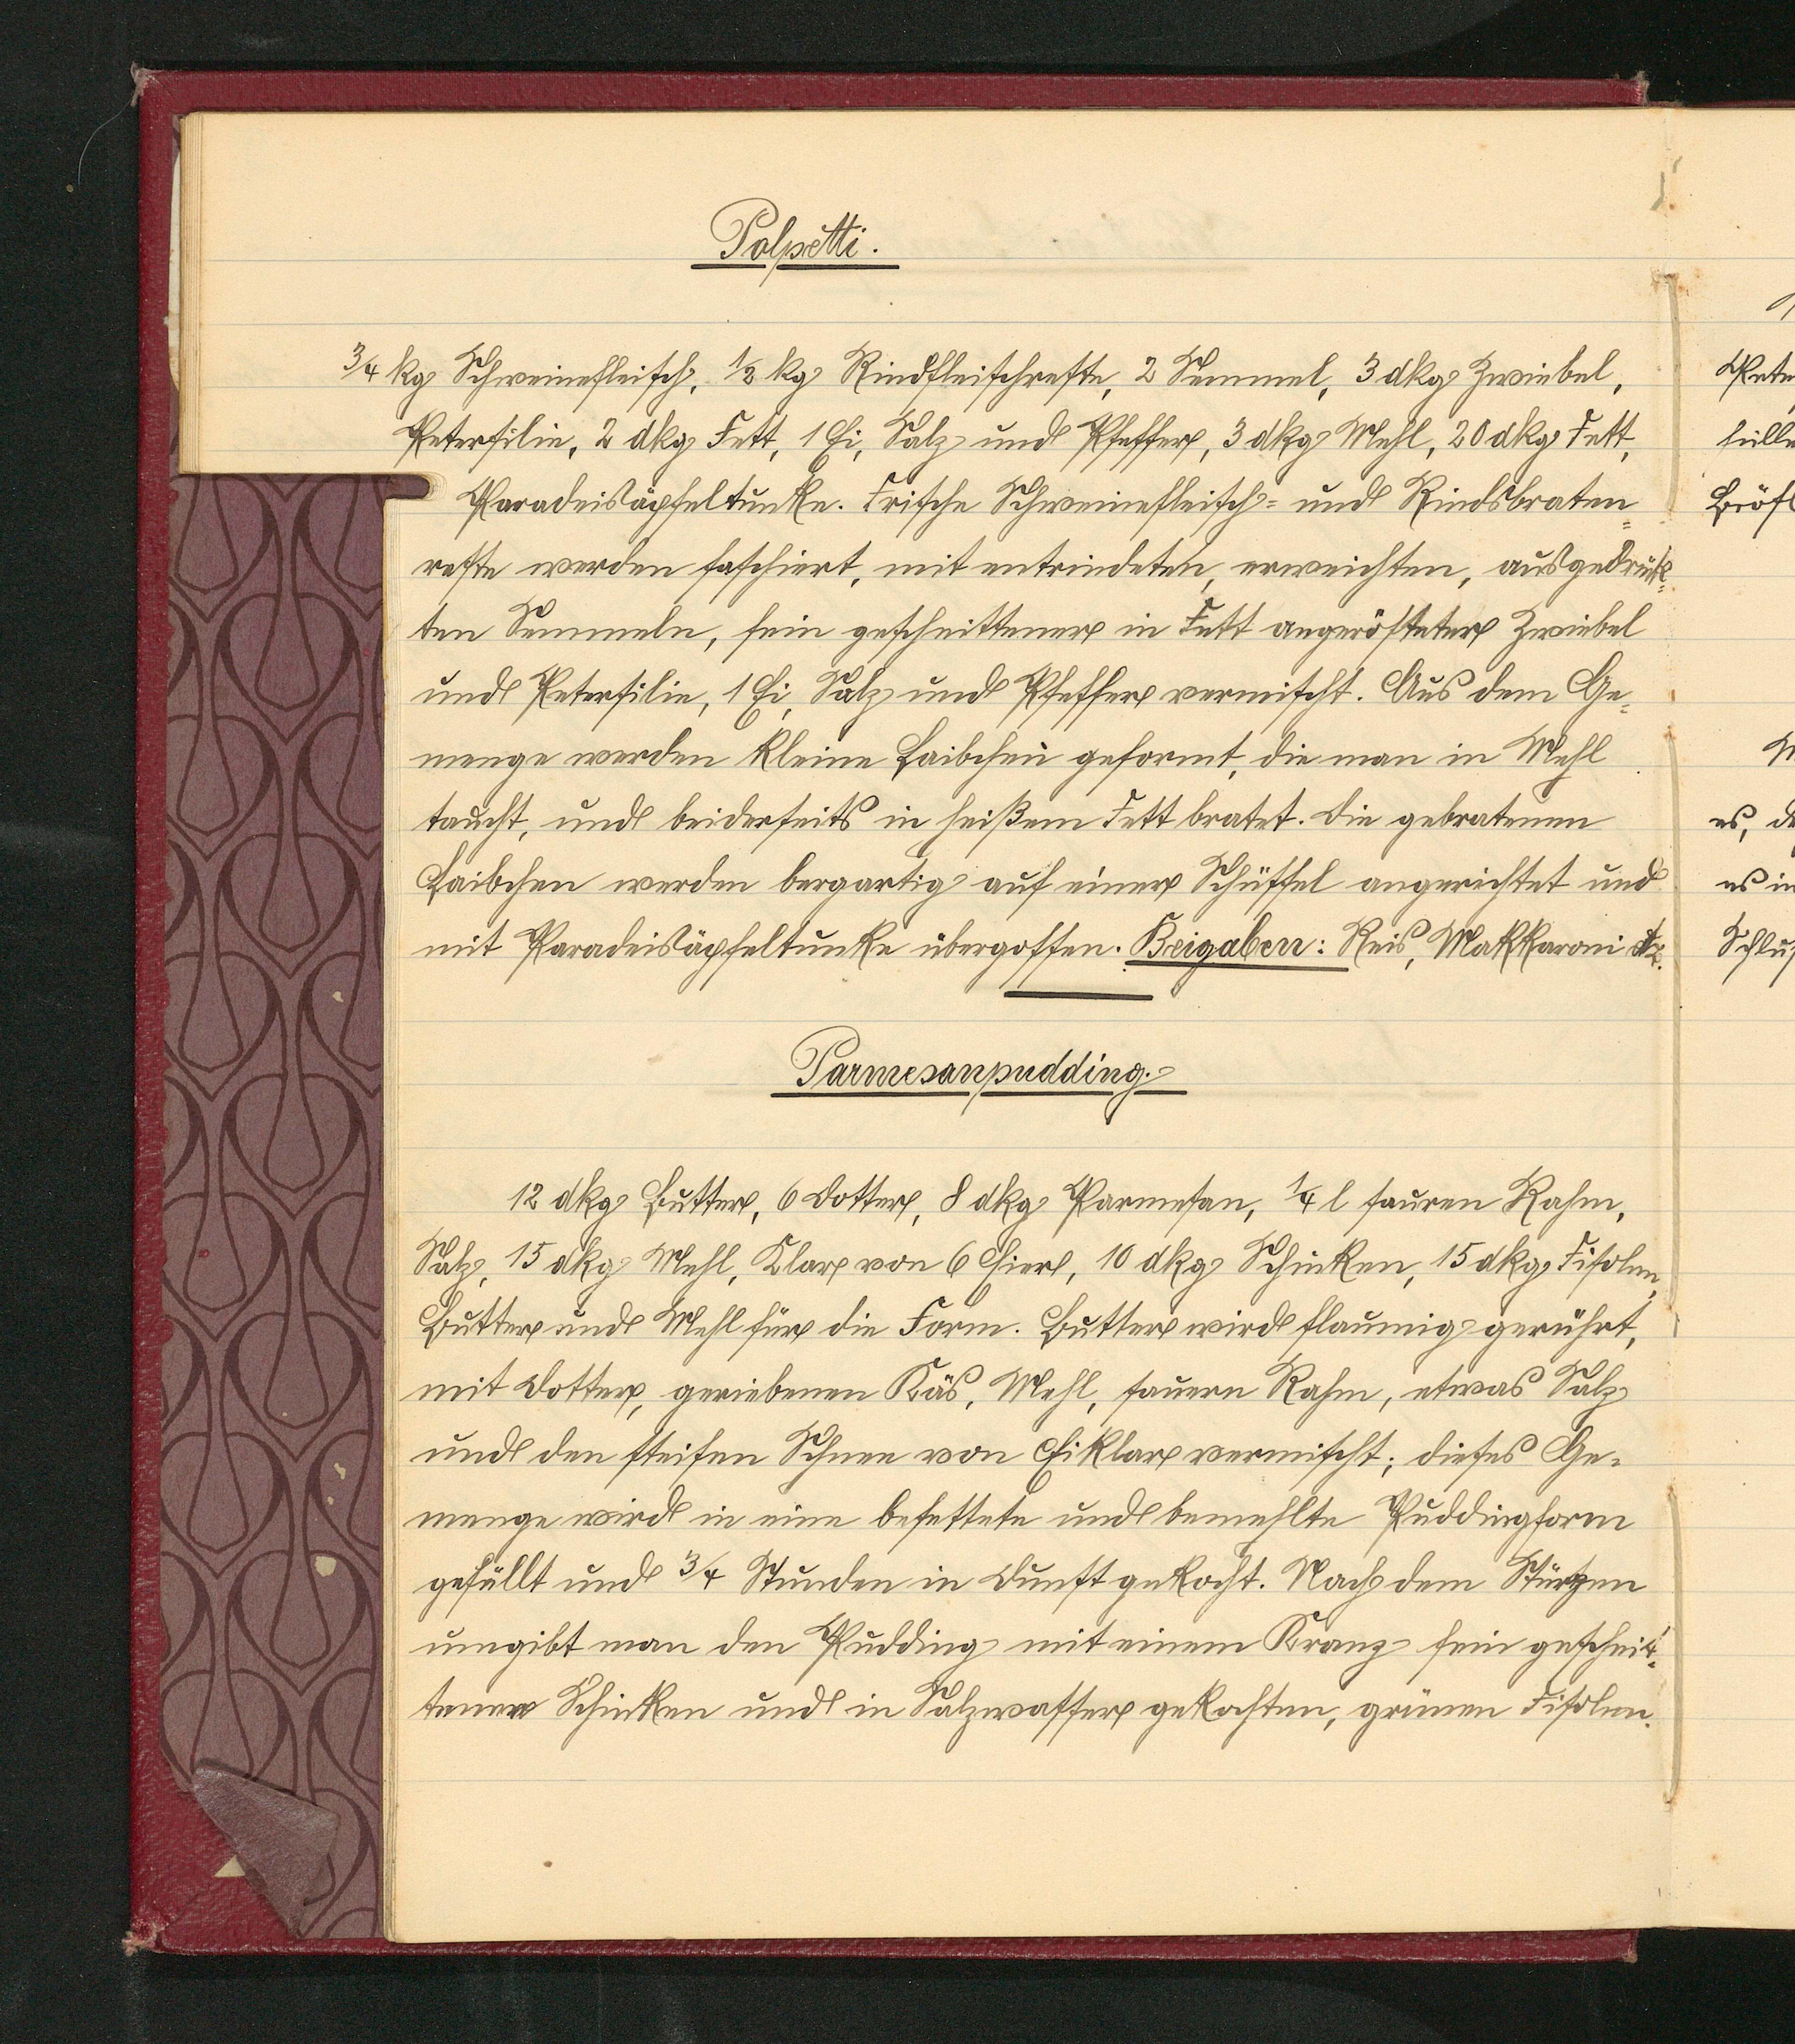 Polpetti.
3/4 kg Schweinefleisch, 1/2 kg Rindfleischreste, 2 Semmel, 3 dkg Zwiebel,
Petersilie, 2 dkg Fett, 1 Ei, Salz und Pfeffer, 3 dkg Mehl, 20 dkg Fett,
Paradeisäpfeltunke. Frische Schweinefleisch= und Rindsbraten=
reste werden faschiert, mit entrindeten, erweichten, ausgedrück=
ten Semmeln, fein geschnittener in Fett angerösteter Zwiebel
und Petersilie, 1 Ei, Salz und Pfeffer vermischt. Aus dem Ge=
menge werden kleine Laibchen geformt, die man in Mehl
taucht, und beiderseits in heißem Fett bratet. Die gebratenen
Laibchen werden bergartig auf einer Schüssel angerichtet und
mit Paradeisäpfeltunke übergossen. Beigaben: Reis, Makkaroni
Parmesanpudding.
12 dkg Butter, 6 Dotter, 8 dkg Parmesan, 1/4 l sauren Rahm,
Salz, 15 dkg Mehl, Klar von 6 Eier, 10 dkg Schinken, 15 dkg Fisolen,
Butter und Mehl für die Form. Butter wird flaumig gerührt,
mit Dotter, geriebenen Käs, Mehl, sauern Rahm, etwas Salz
und den steifen Schnee von Eiklar vermischt; dieses Ge=
menge wird in eine befettete und bemehlte Puddingform
gefüllt und 3/4 Stunden in Dunst gekocht. Nach dem Stürzen
umgibt man den Pudding mit einem Kranz fein geschnit=
tenen Schinken und in Salzwasser gekochten, grünen Fisolen.